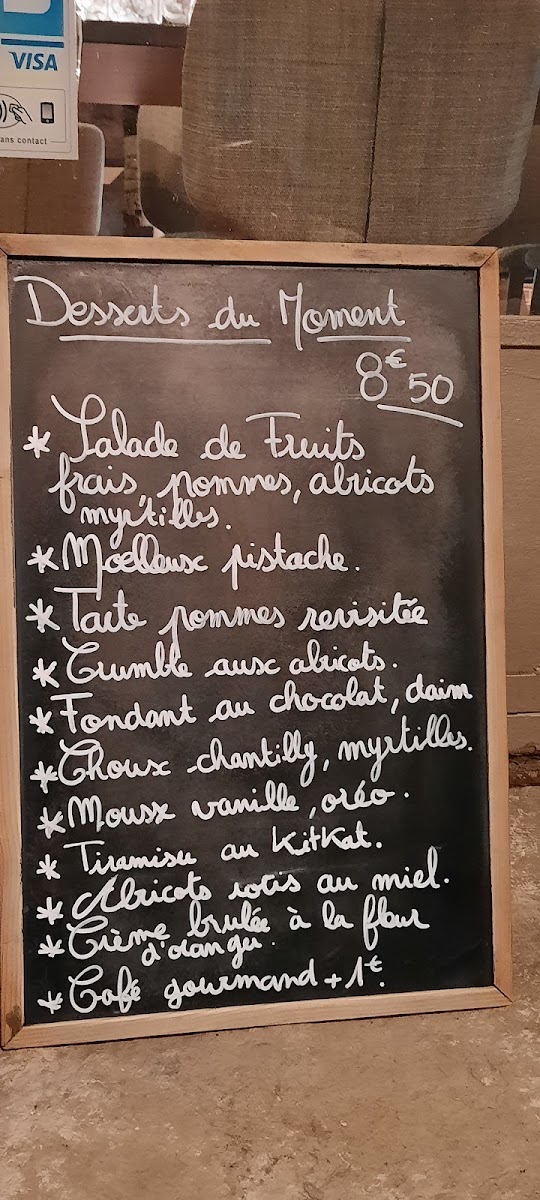 VISA
ans contact
Desserts du Moment
8€50
* Salade de Fruits
frais, pommes, abricots
myrtilles.
* Moelleux pistache.
* Tarte pommes revisitée
* Crumble aux abricots.
* Fondant au chocolat, daim
* Choux chantilly, myrtilles.
* Mousse vanille, oréo.
* Tiramisu au KitKat.
* Abricots rotis au miel.
* Crème brulée à la fleur
d'oranger.
* Café gourmand + 1€.